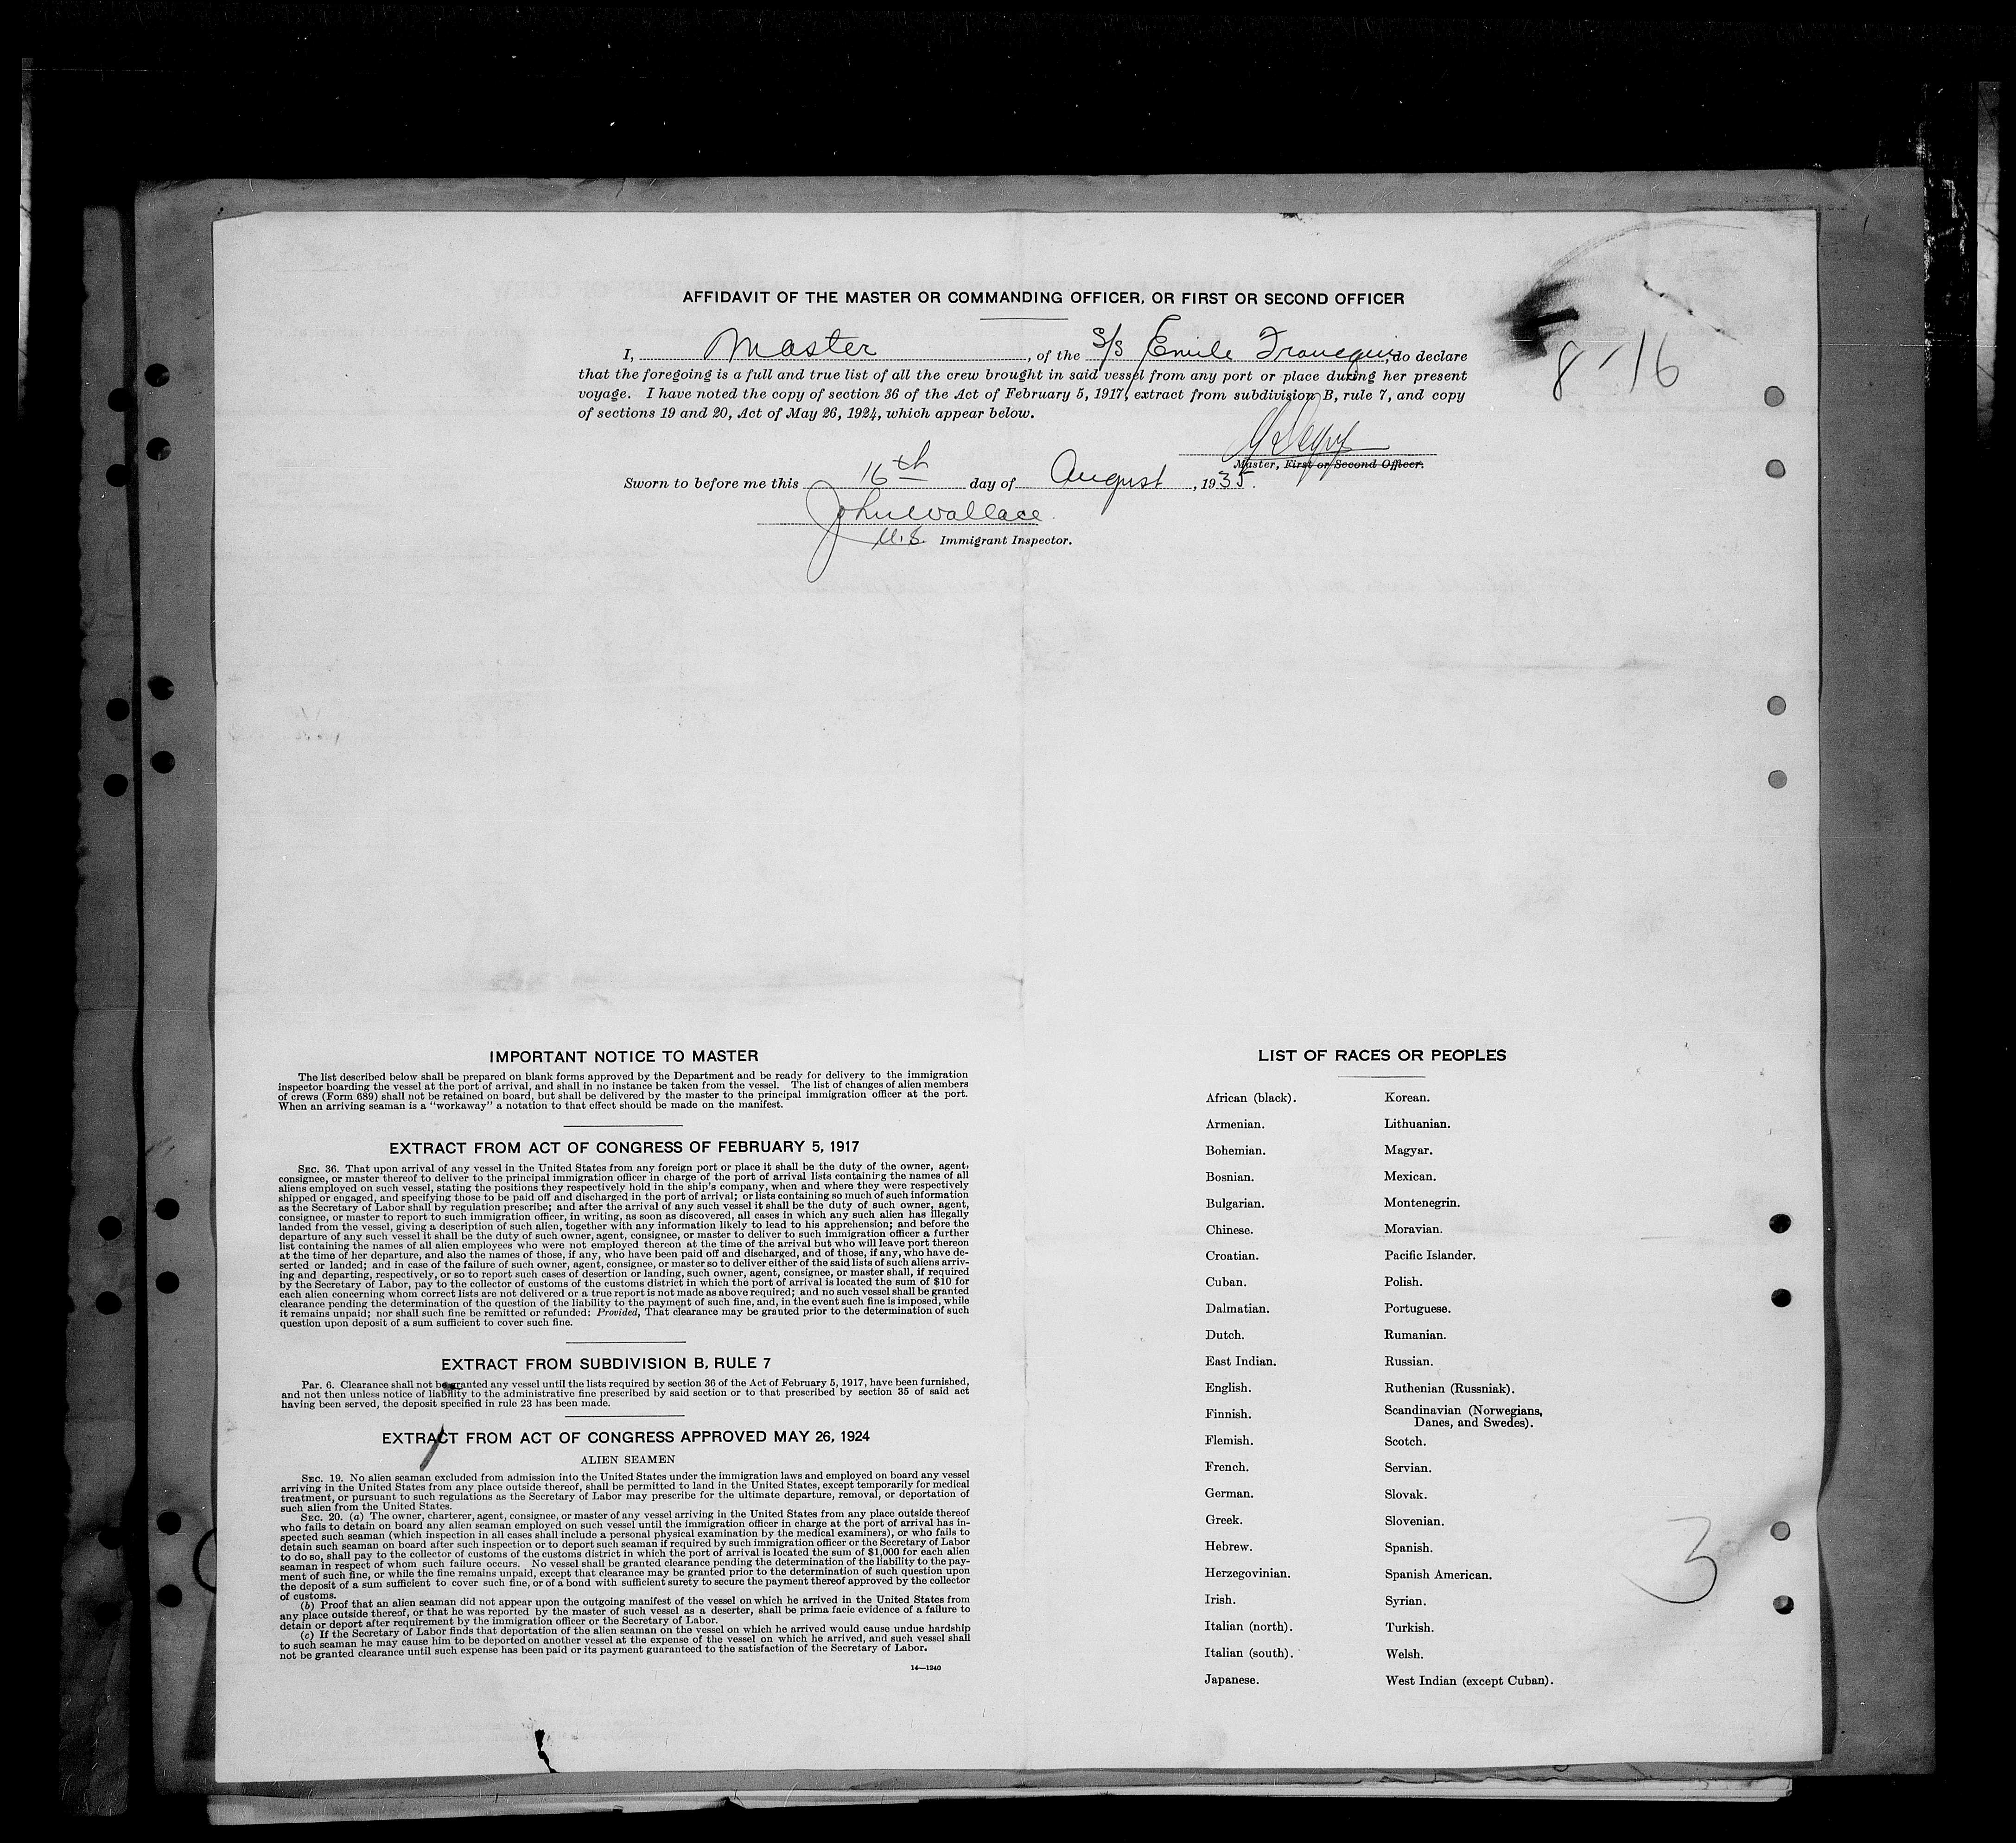 AFFIDAVIT OF THE MASTER OR COMMANDING OFFICER, OR FIRST OR SECOND OFFICER
I, Master, of the S/S Emile Francqui, do declare
that the foregoing is a full and true list of all the crew brought in said vessel from any port or place during her present
voyage. I have noted the copy of section 36 of the Act of February 5, 1917, extract from subdivision B, rule 7, and copy
of sections 19 and 20, Act of May 26, 1924, which appear below.
8-16
Master, First or Second Officer.
Sworn to before me this 16th day of August, 1935.
John Wallace
U.S. Immigrant Inspector.
IMPORTANT NOTICE TO MASTER
The list described below shall be prepared on blank forms approved by the Department and be ready for delivery to the immigration
inspector boarding the vessel at the port of arrival, and shall in no instance be taken from the vessel. The list of changes of alien members
of crews (Form 689) shall not be retained on board, but shall be delivered by the master to the principal immigration officer at the port.
When an arriving seaman is a "workaway" a notation to that effect should be made on the manifest.
EXTRACT FROM ACT OF CONGRESS OF FEBRUARY 5, 1917
SEC. 36. That upon arrival of any vessel in the United States from any foreign port or place it shall be the duty of the owner, agent,
consignee, or master thereof to deliver to the principal immigration officer in charge of the port of arrival lists containing the names of all
aliens employed on such vessel, stating the positions they respectively hold in the ship's company, when and where they were respectively
shipped or engaged, and specifying those to be paid off and discharged in the port of arrival; or lists containing so much of such information
as the Secretary of Labor shall by regulation prescribe; and after the arrival of any such vessel it shall be the duty of such owner, agent,
consignee, or master to report to such immigration officer, in writing, as soon as discovered, all cases in which any such alien has illegally
landed from the vessel, giving a description of such alien, together with any information likely to lead to his apprehension; and before the
departure of any such vessel it shall be the duty of such owner, agent, consignee, or master to deliver to such immigration officer a further
list containing the names of all alien employees who were not employed thereon at the time of the arrival but who will leave port thereon
at the time of her departure, and also the names of those, if any, who have been paid off and discharged, and of those, if any, who have de-
serted or landed; and in case of the failure of such owner, agent, consignee, or master so to deliver either of the said lists of such aliens arriv-
ing and departing, respectively, or so to report such cases of desertion or landing, such owner, agent, consignee, or master shall, if required
by the Secretary of Labor, pay to the collector of customs of the customs district in which the port of arrival is located the sum of $10 for
each alien concerning whom correct lists are not delivered or a true report is not made as above required; and no such vessel shall be granted
clearance pending the determination of the question of the liability to the payment of such fine, and, in the event such fine is imposed, while
it remains unpaid; nor shall such fine be remitted or refunded: Provided, That clearance may be granted prior to the determination of such
question upon deposit of a sum sufficient to cover such fine.
EXTRACT FROM SUBDIVISION B, RULE 7
Par. 6. Clearance shall not be granted any vessel until the lists required by section 36 of the Act of February 5, 1917, have been furnished,
and not then unless notice of liability to the administrative fine prescribed by said section or to that prescribed by section 35 of said act
having been served, the deposit specified in rule 23 has been made.
EXTRACT FROM ACT OF CONGRESS APPROVED MAY 26, 1924
ALIEN SEAMEN
SEC. 19. No alien seaman excluded from admission into the United States under the immigration laws and employed on board any vessel
arriving in the United States from any place outside thereof, shall be permitted to land in the United States, except temporarily for medical
treatment, or pursuant to such regulations as the Secretary of Labor may prescribe for the ultimate departure, removal, or deportation of
such alien from the United States.
SEC. 20. (a) The owner, charterer, agent, consignee, or master of any vessel arriving in the United States from any place outside thereof
who fails to detain on board any alien seaman employed on such vessel until the immigration officer in charge at the port of arrival has in-
spected such seaman (which inspection in all cases shall include a personal physical examination by the medical examiners), or who fails to
detain such seaman on board after such inspection or to deport such seaman if required by such immigration officer or the Secretary of Labor
to do so, shall pay to the collector of customs of the customs district in which the port of arrival is located the sum of $1,000 for each alien
seaman in respect of whom such failure occurs. No vessel shall be granted clearance pending the determination of the liability to the pay-
ment of such fine, or while the fine remains unpaid, except that clearance may be granted prior to the determination of such question upon
the deposit of a sum sufficient to cover such fine, or of a bond with sufficient surety to secure the payment thereof approved by the collector
of customs.
(b) Proof that an alien seaman did not appear upon the outgoing manifest of the vessel on which he arrived in the United States from
any place outside thereof, or that he was reported by the master of such vessel as a deserter, shall be prima facie evidence of a failure to
detain or deport after requirement by the immigration officer or the Secretary of Labor.
(c) If the Secretary of Labor finds that deportation of the alien seaman on the vessel on which he arrived would cause undue hardship
to such seaman he may cause him to be deported on another vessel at the expense of the vessel on which he arrived, and such vessel shall
not be granted clearance until such expense has been paid or its payment guaranteed to the satisfaction of the Secretary of Labor.
14—1240
LIST OF RACES OR PEOPLES
African (black).
Armenian.
Bohemian.
Bosnian.
Bulgarian.
Chinese.
Croatian.
Cuban.
Dalmatian.
Dutch.
East Indian.
English.
Finnish.
Flemish.
French.
German.
Greek.
Hebrew.
Herzegovinian.
Irish.
Italian (north).
Italian (south).
Japanese.
Korean.
Lithuanian.
Magyar.
Mexican.
Montenegrin.
Moravian.
Pacific Islander.
Polish.
Portuguese.
Rumanian.
Russian.
Ruthenian (Russniak).
Scandinavian (Norwegians,
Danes, and Swedes).
Scotch.
Servian.
Slovak.
Slovenian.
Spanish.
Spanish American.
Syrian.
Turkish.
Welsh.
West Indian (except Cuban).
3